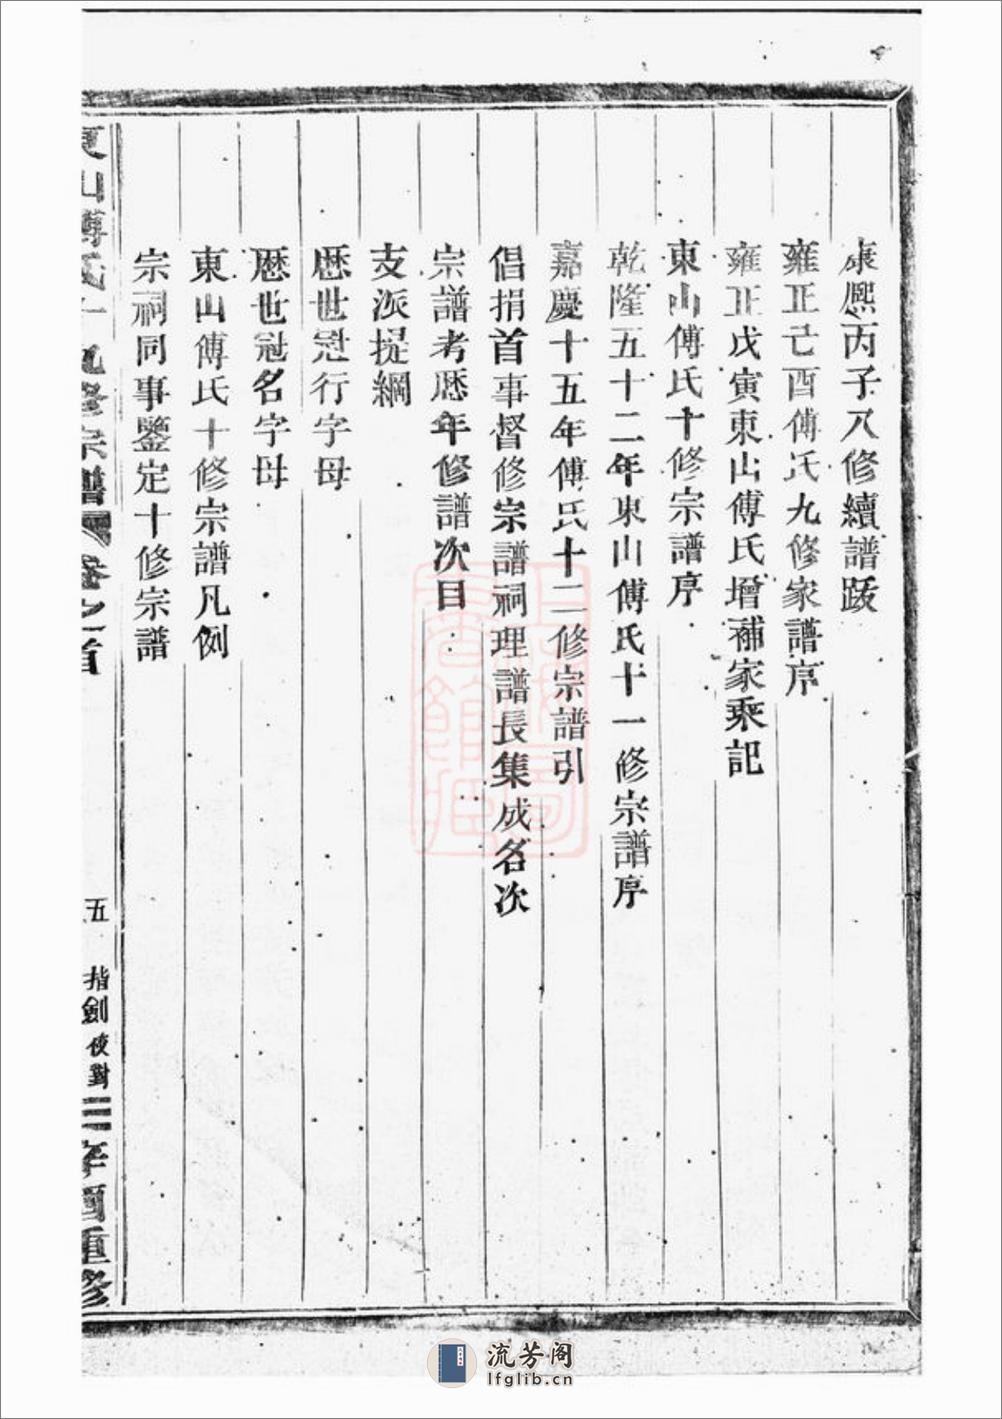 康熙丙子八修續譜跋
雍正己酉傅氏九修家譜序
雍正戊寅東山傅氏增補家乘記
東山傅氏十修宗譜序
乾隆五十二年東山傅氏十一修宗譜序
嘉慶十五年傅氏十二修宗譜引
倡捐首事督修宗譜祠理譜長集成名次
宗譜考歷年修譜次目
支派提綱
歷世冠行字母
歷世冠名字母
東山傅氏十修宗譜凡例
宗祠同事鑒定十修宗譜
東山傅氏十九修宗譜 卷之首
五
揩劍俠對
辛酉重修
流芳阁
lfglib.cn